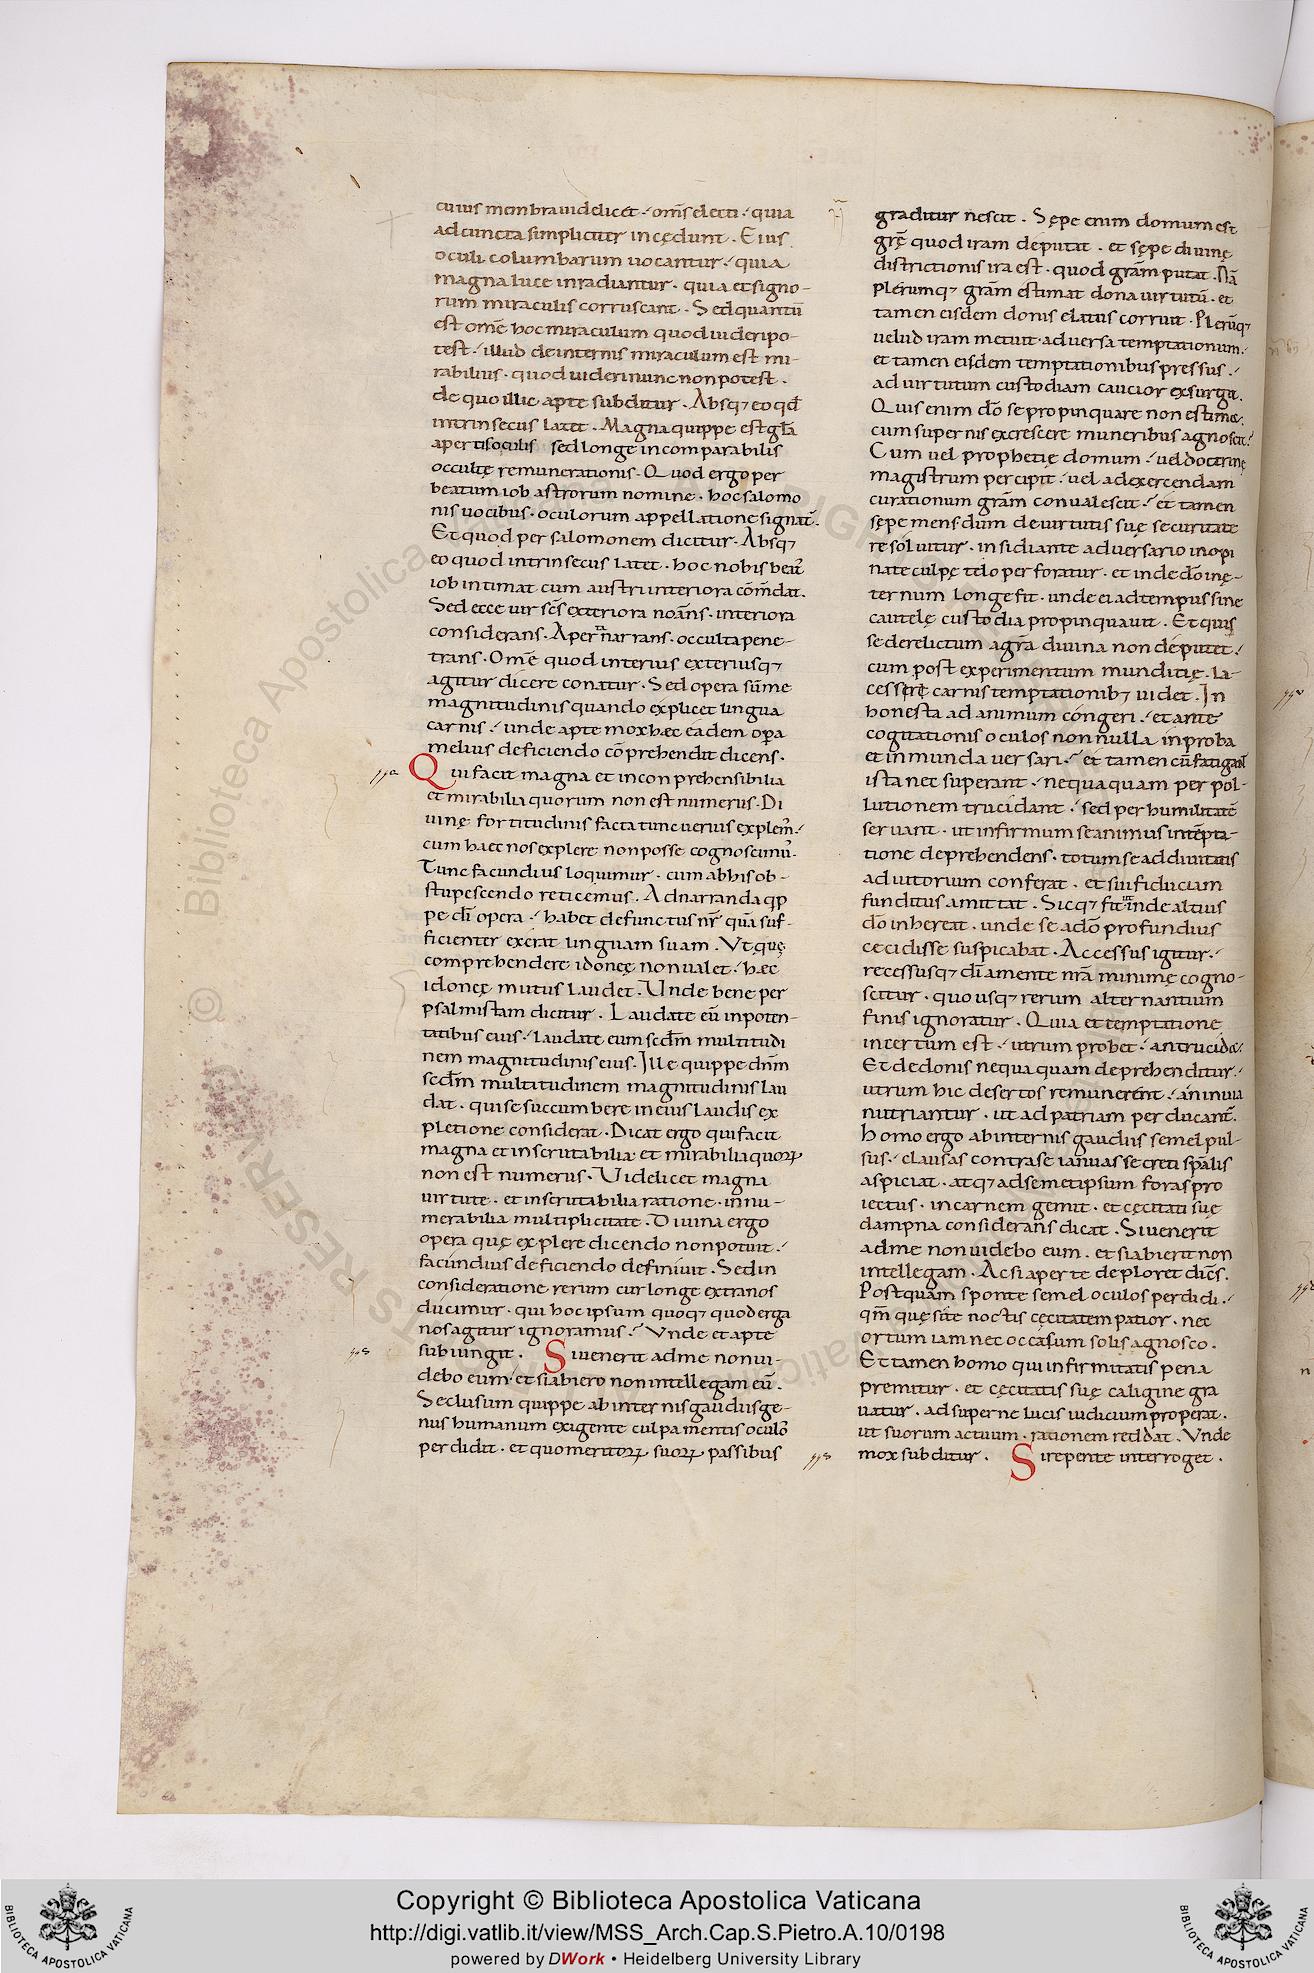 cuius membra uidelicet ·/ om̅s electi ·/ quia
ad cuncta simpliciter incedunt · Eius
oculi columbarum uocantur ·/ quia
magna luce inradiantur · quia et signo-
rum miraculis corruscant · Sed quantū
est om̅e hoc miraculum quod uideri po-
test ·/ illud de internis miraculum est mi-
rabilius · quod uideri nunc non potest ·
de quo illic apte subditur · Absq; eo qd̅
intrinsecus latet · Magna quippe est gl̅a
apertis oculis sed longe incomparabilis
occultę remunerationis · Quod ergo per
beatum iob astrorum nomine · hoc salomo
nis uocibus · oculorum appellatione signat̅ ·
Et quod per salomonem dicitur · Absq;
eo quod intrinsecus latet · hoc nobis beat̅
iob intimat cum austri interiora com̅dat ·
Sed ecce uir sc̅s exteriora no̅ans · interiora
considerans · Aperta narrans · occulta pene-
trans · Om̅e quod interius exteriusq;
agitur dicere conatur · Sed opera sum̅e
magnitudinis quando explicet lingua
carnis ·/ unde apte mox hæc eadem opa̅
melius deficiendo co̅prehendit dicens ·
Qui facit magna et inconprehensibilia
et mirabilia quorum non est numerus · Di
uinę fortitudinis facta tunc uerius explem̅ ·/
cum hæc nos explere non posse cognoscimu̅ ·
Tunc facundius loquimur · cum ab his ob-
stupescendo reticemus · Ad narranda qip
pe di̅ opera ·/ habet defunctus nr̅ qua̅ suf-
ficienter exerat linguam suam · Ut quę
comprehendere idonee non ualet ·/ hæc
idonee mutus laudet · Unde bene per
psalmistam dicitur · Laudate eu̅ in poten-
tatibus eius ·/ laudate eum scdm̅ multitudi
nem magnitudinis eius · Ille quippe dn̅m
scdm̅ multitudinem magnitudinis lau
dat · qui se succumbere in eius laudis ex
pletione considerat · Dicat ergo qui facit
magna et inscrutabilia · et mirabilia quoꝝ
non est numerus · Uidelicet magna
uirtute · et inscrutabilia ratione · innu-
merabilia multiplicitate · Diuina ergo
opera quę explere dicendo non potuit ·/
facundius deficiendo definiuit · Sed in
consideratione rerum cur longe extra nos
ducimur · qui hoc ipsum quoq; quod erga
nos agitur ignoramus ·/ Vnde et apte
subiungit · Si uenerit ad me non ui-
debo eum · et si abiero non intellegam eu̅ ·
Seclusum quippe ab internis gaudiis ge-
nus humanum exigente culpa mentis oculo̅
perdidit · et quo meritoꝝ suoꝝ passibus
graditur nescit · Sępe enim domum est
gre̅ quod iram deputat · et sępe diuinę
districtionis ira est · quod gra̅m putat · Na̅
plerumq; gra̅m estimat dona uirtutu̅ · et
tamen eisdem donis elatus corruit · Pleru̅q;
uelud iram metuit aduersa temptationum ·/
et tamen eisdem temptationibus pressus ·/
ad uirtutum custodiam caucior exsurgit ·
Quis enim do̅ se propinquare non estimet ·
cum supernis excrescere muneribus agnoscit ·/
Cum uel prophetię domum ·/ uel doctrinę
magistrum percipit ·/ uel ad exercendam
curationum gra̅m conualescit ·/ et tamen
sępe mens dum de uirtutis suę securitate
resoluitur · insidiante aduersario inopi
nate culpę telo perforatur · et inde do̅ inę-
ternum longe fit · unde ei ad tempus sine
cautelę custodia propinquauit · Et quis
se derelictum a gra̅ diuina non deputet ·/
cum post experimentum munditię · la-
cessere carnis temptationib; uidet · In
honesta ad animum congeri ·/ et ante
cogitationis oculos nonnulla inproba
et inmunda uersari ·/ et tamen cu̅ fatigant
ista nec superant ·/ nequaquam per pol-
lutionem trucidant ·/ sed per humilitate̅
seruant · ut infirmum se animus inte̅pta-
tione deprehendens · totum se ad diuinitatis
adiutorium conferat · et sui fiduciam
funditus amittat · Sicq; fit ut inde altius
do̅ inhereat · unde se a do̅ profundius
cecidisse suspicabat · Accessus igitur ·/
recessusq; di̅ a mente nr̅a minimę cogno-
scitur · quousq; rerum alternantium
finis ignoratur · Quia et temptatione
incertum est ·/ utrum probet ·/ an trucidet ·
Et de donis nequaquam deprehenditur ·/
utrum hic desertos remunerent ·/ an in uia
nutriantur · ut ad patriam perducant̅ ·
Homo ergo ab internis gaudiis semel pul-
sus ·/ clausas contra se ianuas secreti sp̅alis
aspiciat · atq; ad semetipsum foras pro
iectus · in carnem gemit · et cęcitati suę
dampna considerans dicat · Si uenerit
ad me non uidebo eum · et si abierit non
intellegam · Ac si aperte deploret dice̅s ·
Postquam sponte semel oculos perdidi ·/
qm̅ quę sit noctis cęcitatem patior · nec
ortum iam nec occasum solis agnosco ·
Et tamen homo qui infirmitatis pena
premitur · et cęcitatis suę caligine gra
uatur · ad supernę lucis iudicium properat ·
ut suorum actuum · rationem reddat · Vnde
mox subditur · Si repente interroget ·
© Biblioteca Apostolica Vaticana
ALL RIGHTS RESERVED
Copyright © Biblioteca Apostolica Vaticana
http://digi.vatlib.it/view/MSS_Arch.Cap.S.Pietro.A.10/0198
powered by DWork • Heidelberg University Library
BIBLIOTECA APOSTOLICA VATICANA
BIBLIOTECA APOSTOLICA VATICANA